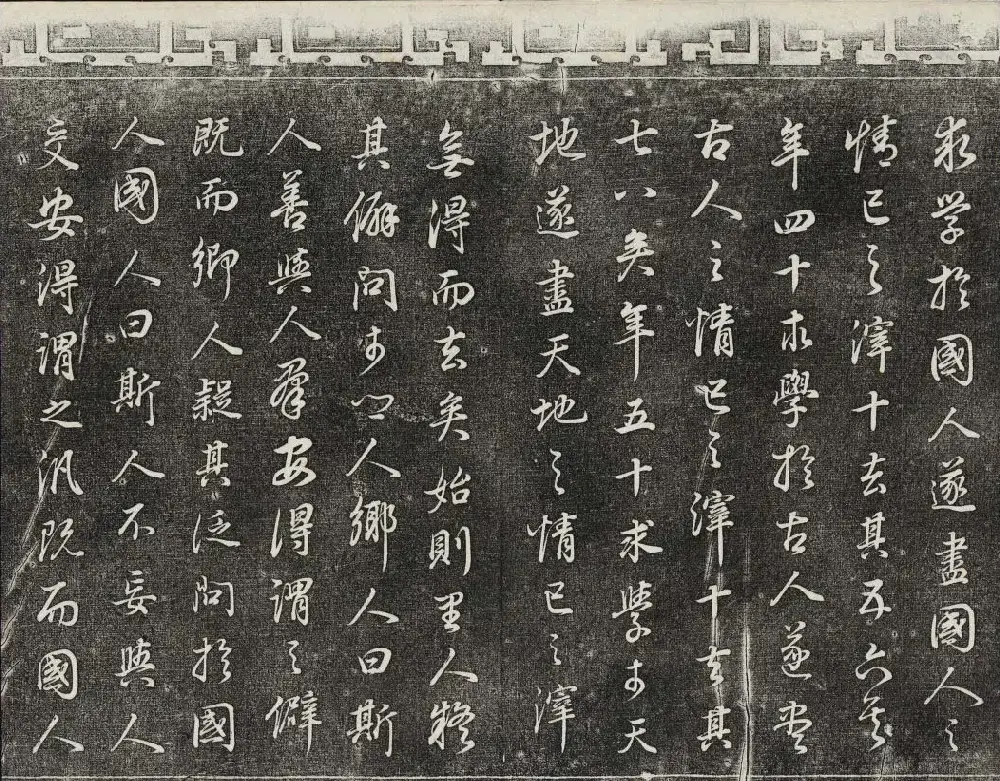 求學於國人遂盡國人之
情己之滓十去其五六矣
年四十求學於古人遂盡
古人之情己之滓十去其
七八矣年五十求學於天
地遂盡天地之情己之滓
無得而去矣始則里人疑
其僻問於鄉人鄉人曰斯
人善與人羣安得謂之僻
既而鄉人疑其泛問於國
人國人曰斯人不妄與人
交安得謂之汎既而國人